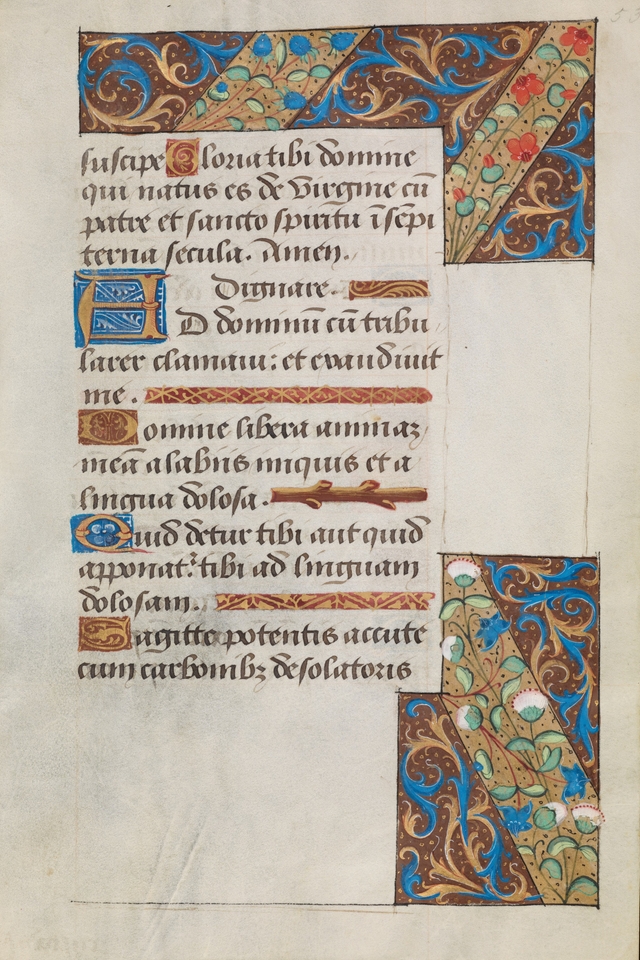 suscipe Gloria tibi domine
qui natus es de virgine cū
patre et sancto spiritu ī sēpi
terna secula. Amen.
Dignare.
AD dominū cū tribu
larer clamaui: et exaudiuit
me.
Domine libera animaꝫ
meā a labiis iniquis et a
lingua dolosa.
Quid detur tibi aut quid
apponat᷑ tibi ad linguam
dolosam.
Sagitte potentis accute
cum carbonibꝫ desolatoris